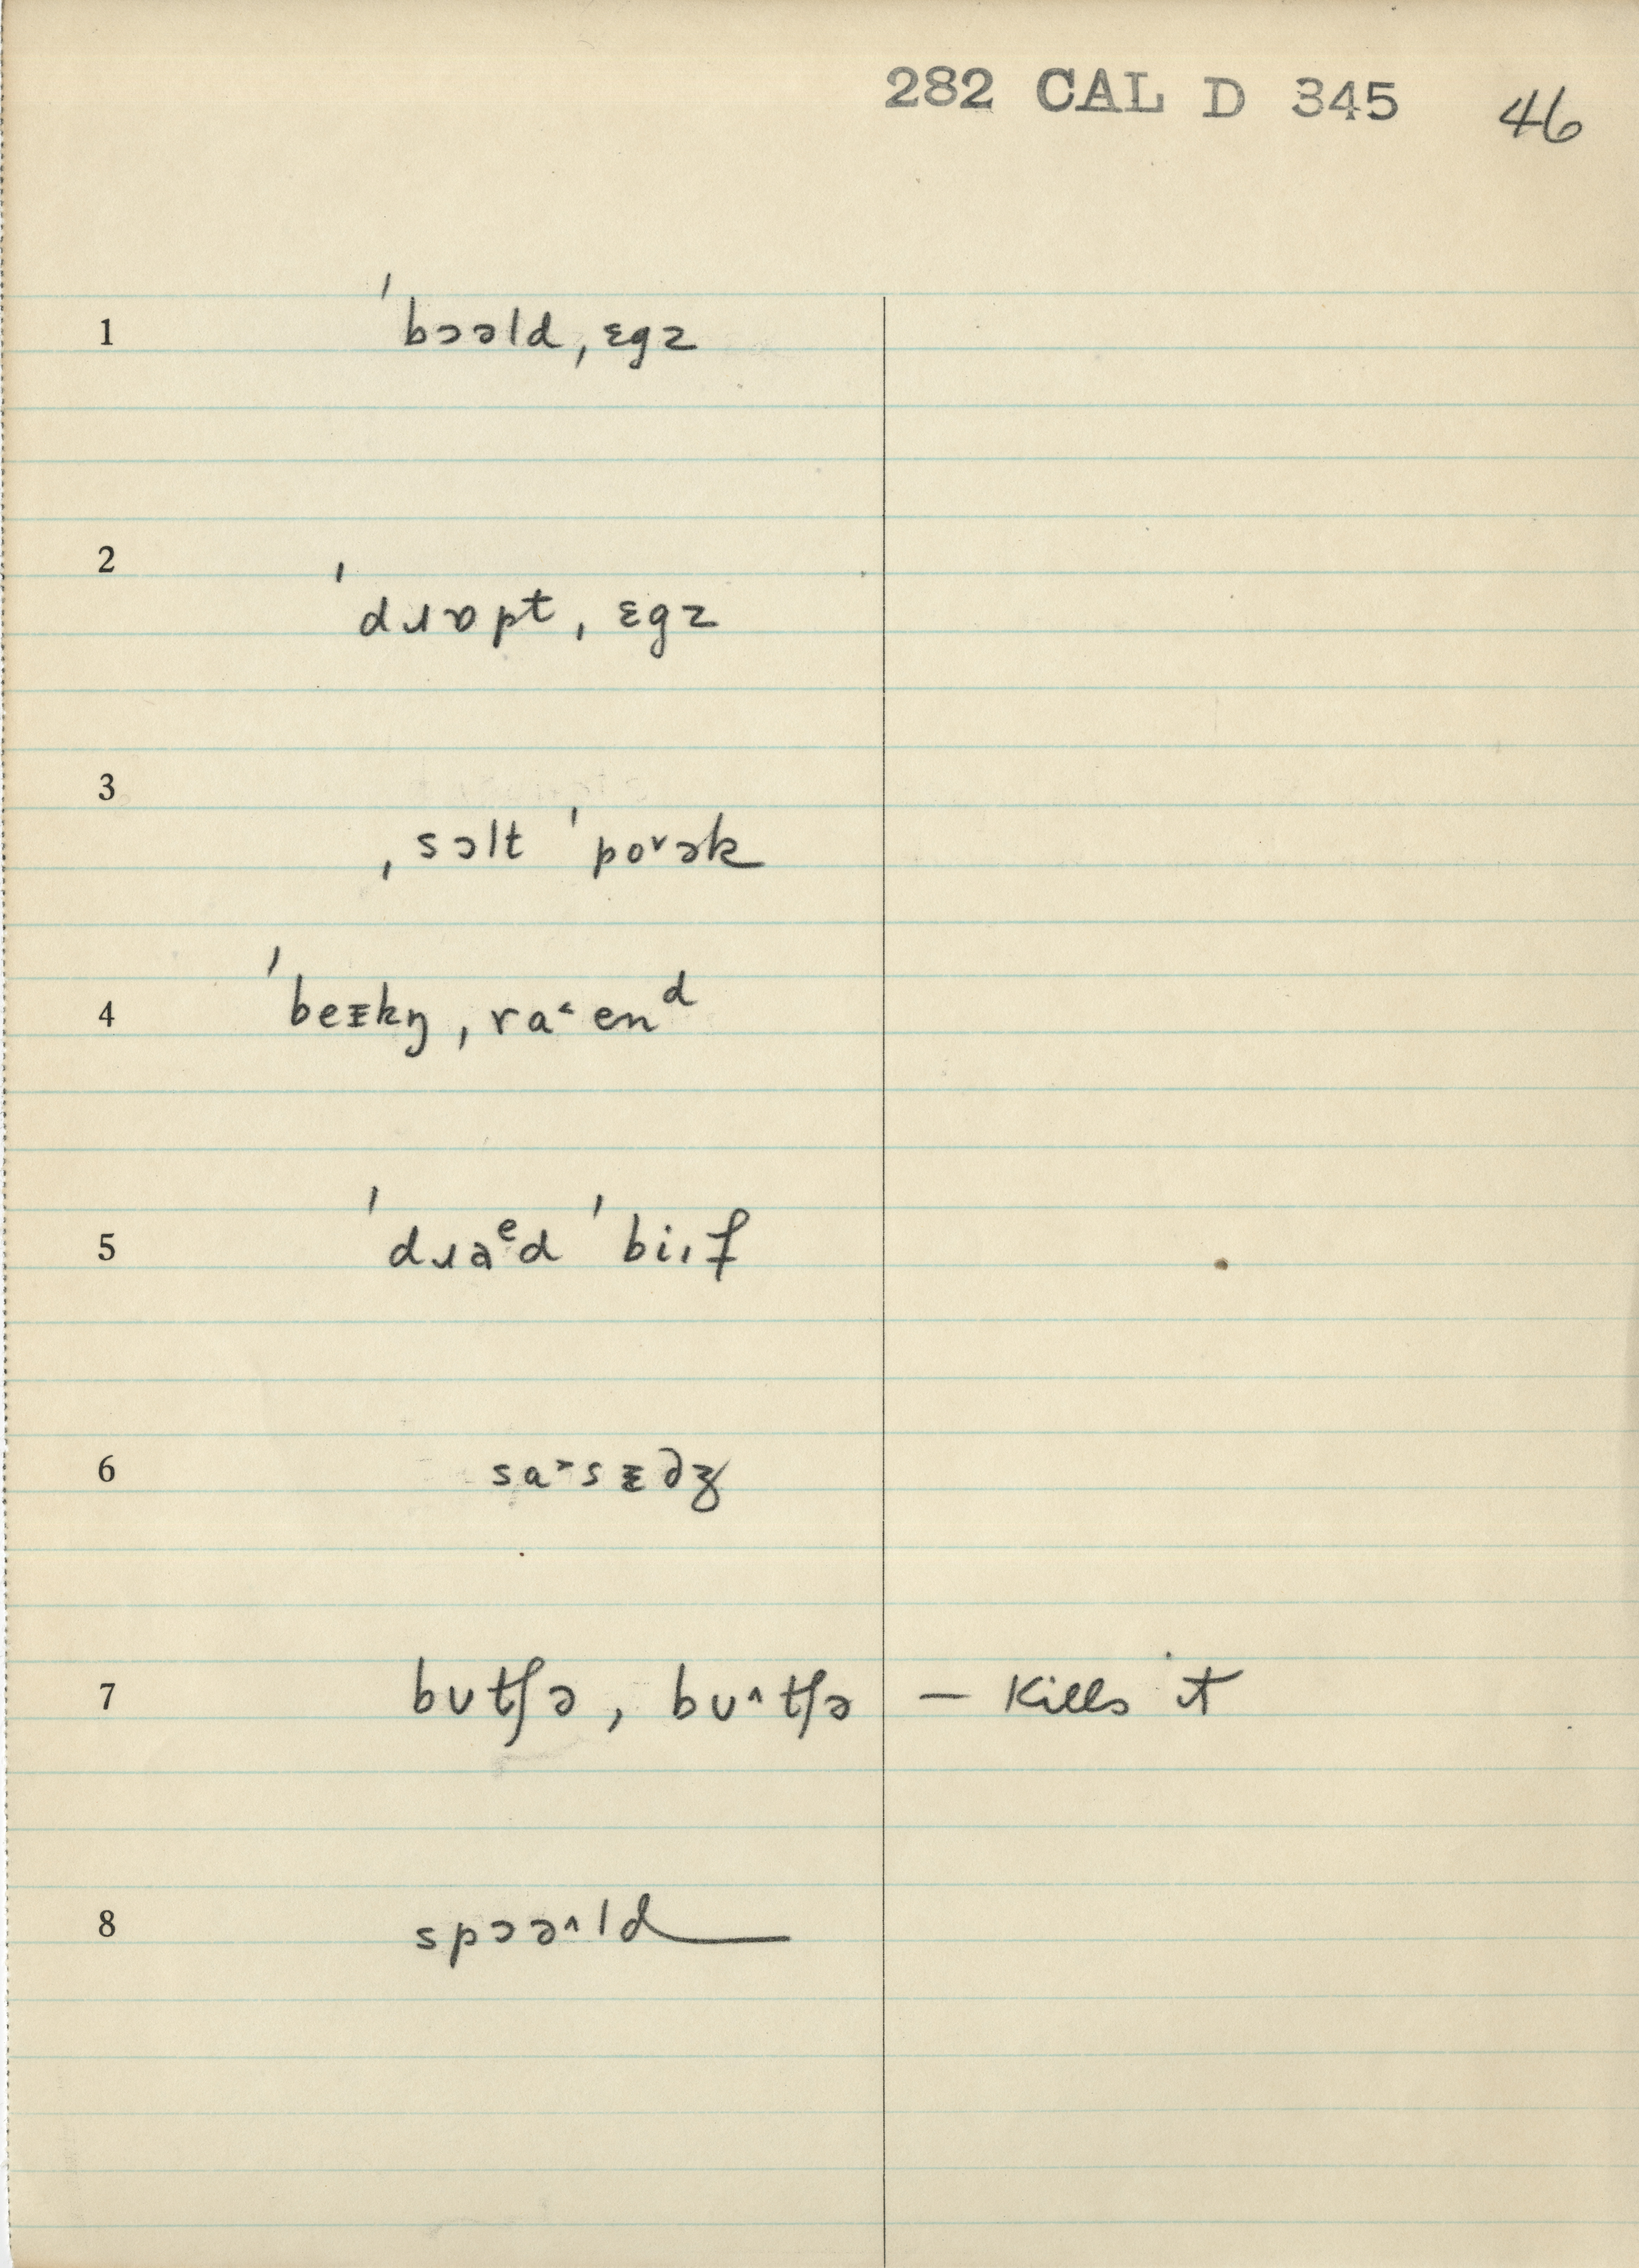 282 CAL D 345 46
1 ˈbɔəldˌɛgz
2 ˈdɹɒptˌɛgz
3 ˌsɔlt ˈpo˅ək
4 ˈbeᵻkŋ̩ˌra˂enᵈ
5 ˈdɹaᵉd ˈbiıf
6 sa˃sɛdʒ
7 bʊtʃə, bʊ˄tʃə — Kills it
8 spɔə˄ld